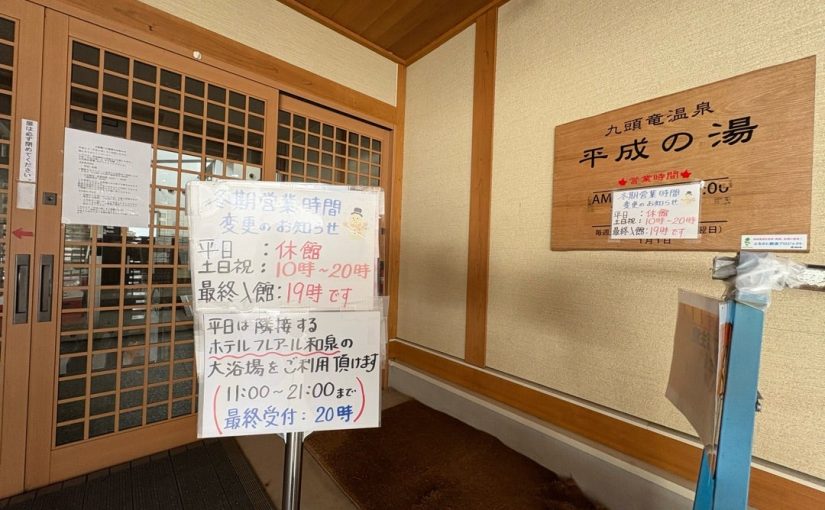 扉は必ず閉めてください。
冬期営業時間
変更のお知らせ
平日 : 休館
土日祝 : 10時~20時
最終入館 : 19時です
平日は隣接する
ホテルフレアール和泉の
大浴場をご利用頂けます
(11:00~21:00まで
最終受付 : 20時)
九頭竜温泉
平成の湯
営業時間
AM
:00
冬期営業時間
変更のお知らせ
平日 : 休館
土日祝 : 10時~20時
最終入館 : 19時です
毎週
曜日)
1月1日